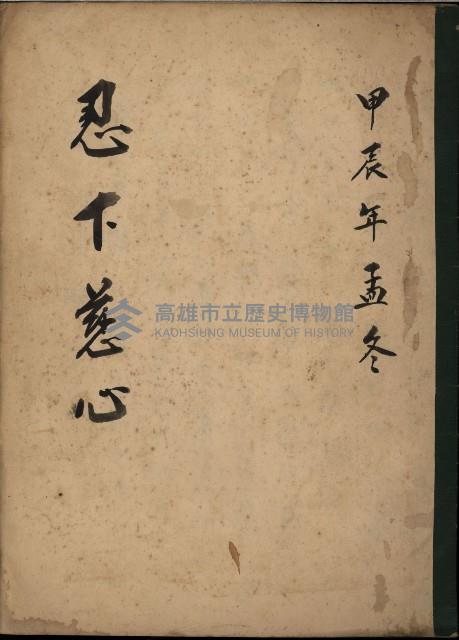 甲辰年孟冬
忍下慈心
高雄市立歷史博物館
KAOHSIUNG MUSEUM OF HISTORY